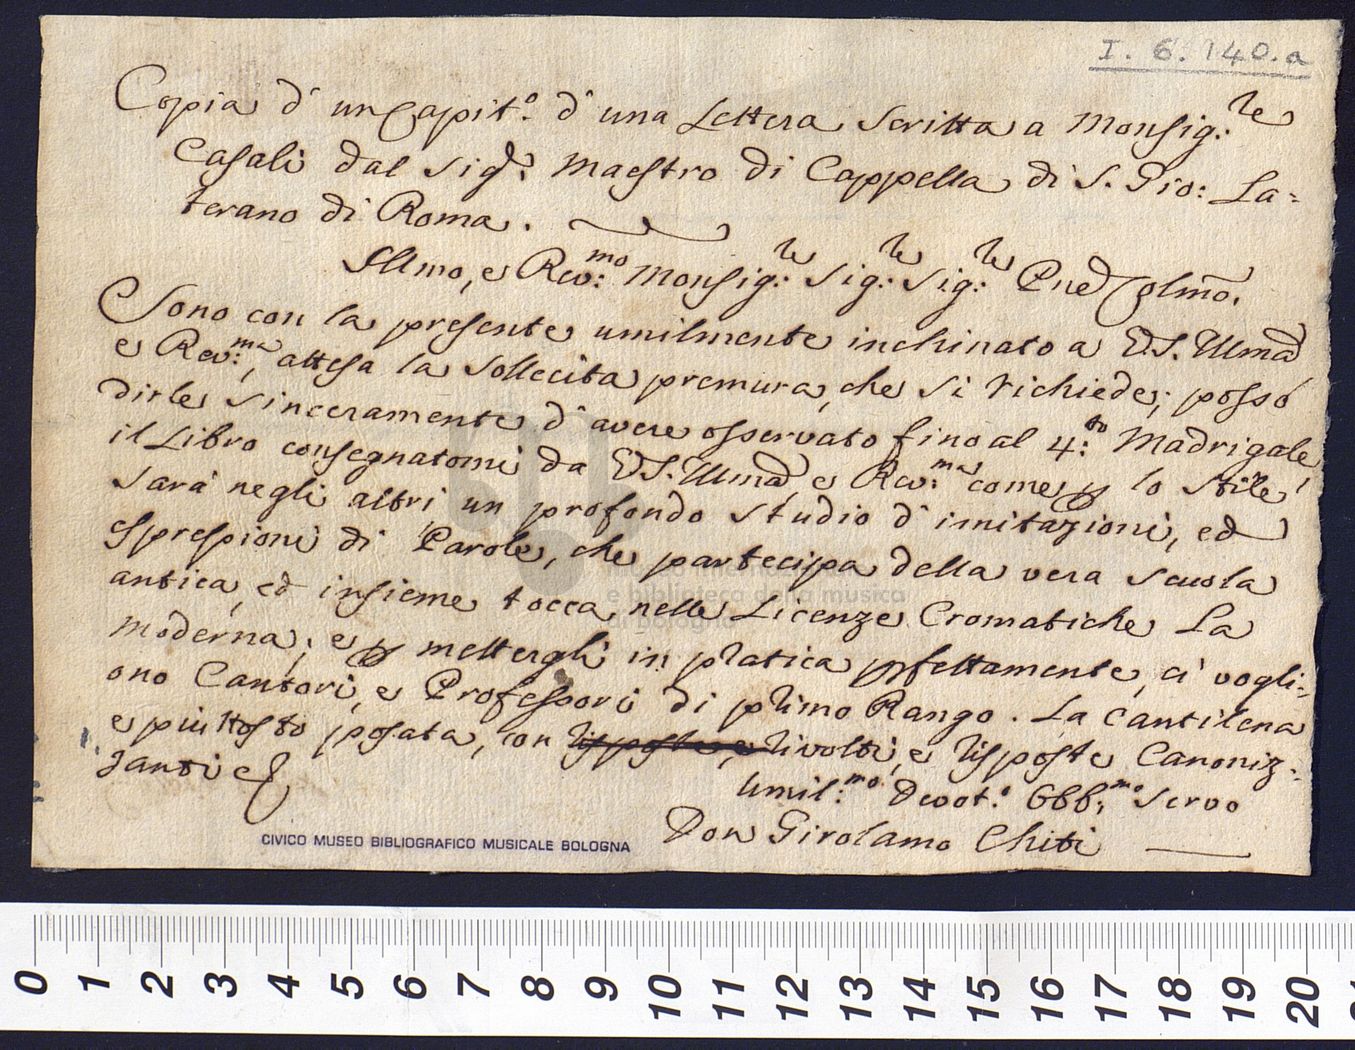 I. 6. 140.a
Copia d' un Capit.o d' una Lettera scritta a Monsig:re
Casali dal Sig:r Maestro di Cappella di S. Gio: La=
terano di Roma.
Illmo, e Rev:mo Monsig:re Sig:re Sig:re Pne Colmo.
Sono con la presente umilmente inchinato a V.S. Illma
e Rev:ma, attesa la sollecita premura, che si richiede; posso
dirle sinceramente d' avere osservato fino al 4:to Madrigale
il Libro consegnatomi da V.S. Illma e Rev:ma come p lo stile
sarà negli altri un profondo studio d' imitazioni, ed
espressioni di Parole, che partecipa della vera scuola
antica, ed insieme tocca nelle Licenze Cromatiche La
moderna; e p mettergli in pratica pfettamente, ci vogli=
ono Cantori, e Professori di primo Rango. La cantilena
e piuttosto posata, con risposte, e rivolti, e risposte Canoniz=
zanti &
Umil:mo Devot.o Obb:mo Servo
Don Girolamo Chiti
CIVICO MUSEO BIBLIOGRAFICO MUSICALE BOLOGNA
e biblioteca della musica
di Bologna
0 1 2 3 4 5 6 7 8 9 10 11 12 13 14 15 16 17 18 19 20